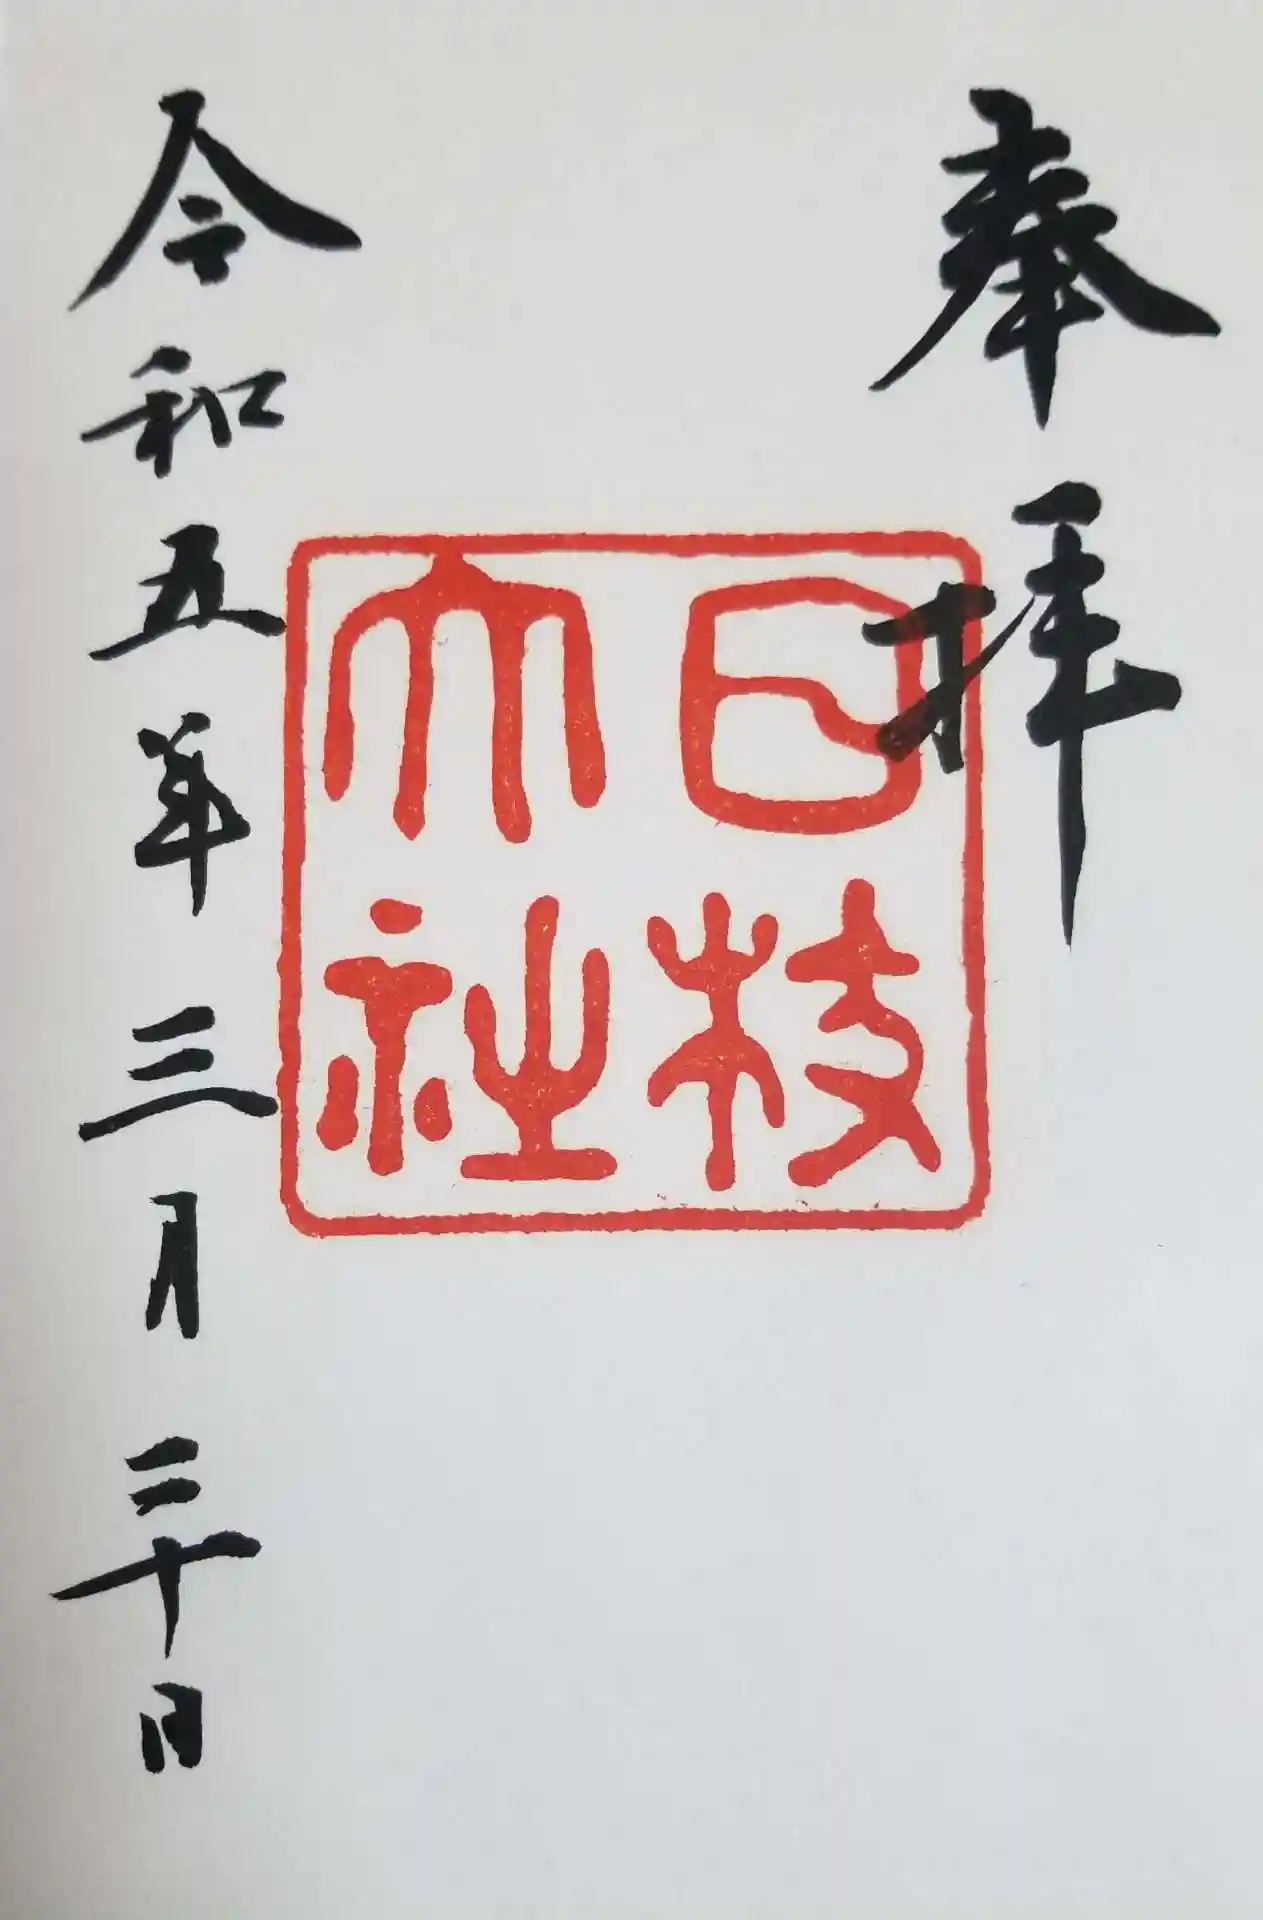 奉拝
日枝
大社
令和五年三月三十日